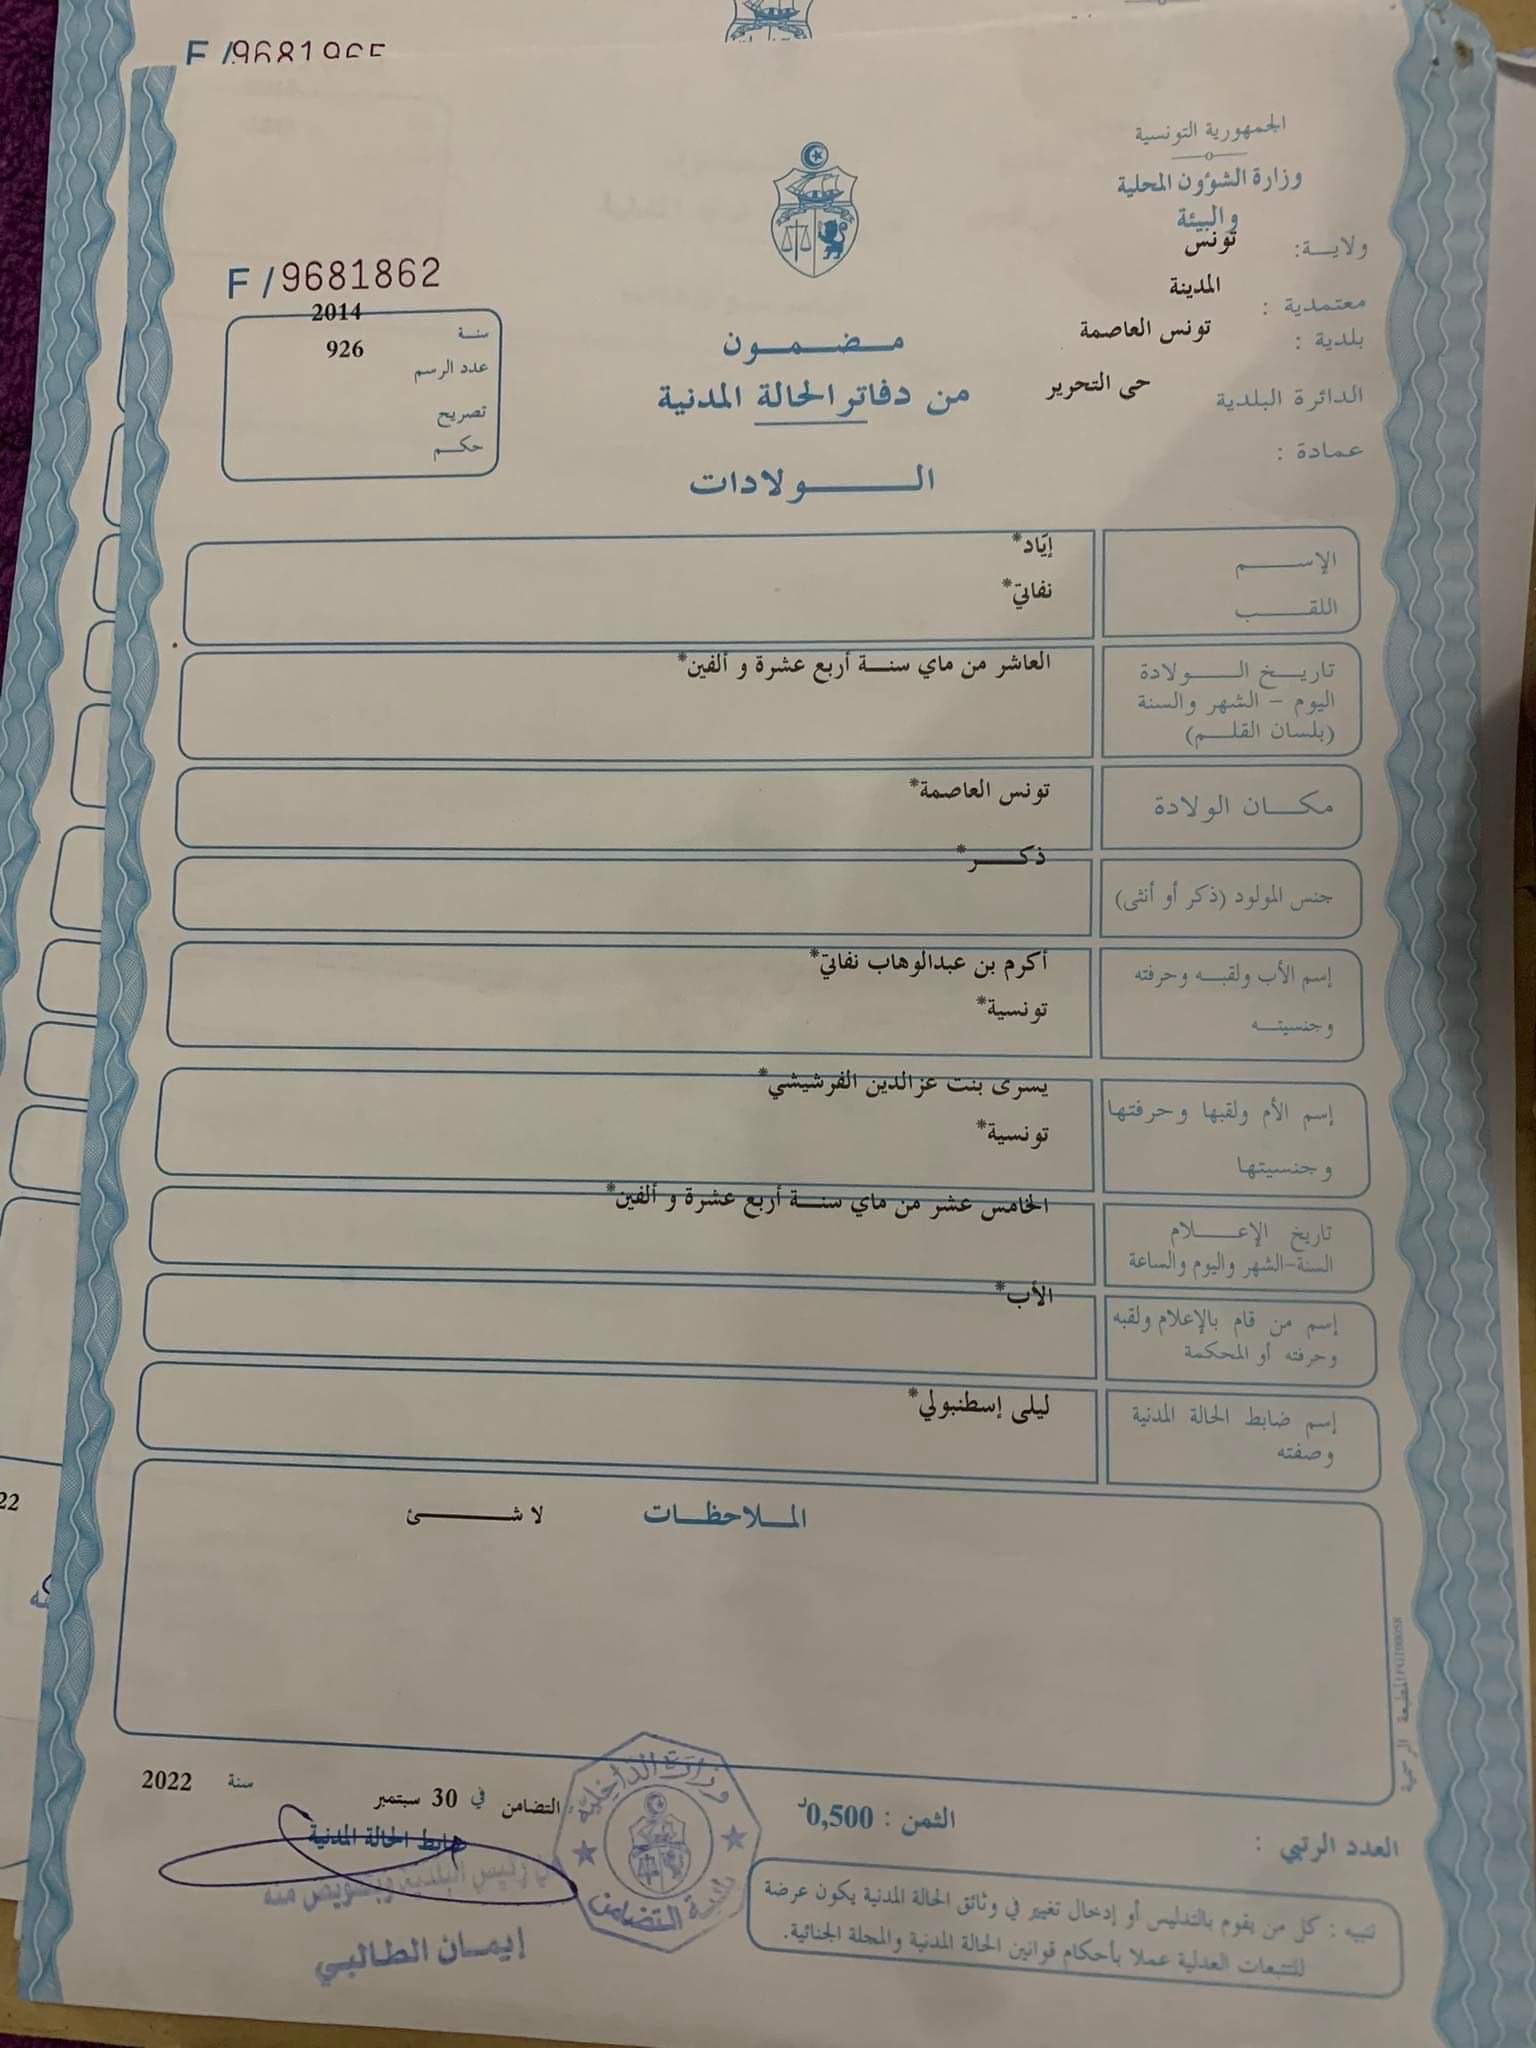 F /9681965
الجمهورية التونسية
وزارة الشؤون المحلية
والبيئة
ولايـــة: تونس
معتمدية : المدينة
بلدية : تونس العاصمة
الدائرة البلدية حي التحرير
عمادة :
F /9681862
سنـة 2014
عدد الرسم 926
تصريح
حكـــم
مــضــمــون
من دفاتر الحالة المدنية
الــــولادات
الإســـــم إيّاد*
اللقـــــب نفاتي*
تاريــخ الــــولادة العاشر من ماي سنــة أربع عشرة و ألفين*
اليوم – الشهر والسنة
(بلسان القلـــم)
مكــان الولادة تونس العاصمة*
جنس المولود (ذكر أو أنثى) ذكـــر*
إسم الأب ولقبــه وحرفته أكرم بن عبدالوهاب نفاتي*
وجنسيتــه تونسية*
إسم الأم ولقبها وحرفتها يسرى بنت عزالدين الفرشيشي*
وجنسيتها تونسية*
تاريخ الإعـــلام الخامس عشر من ماي سنــة أربع عشرة و ألفين*
السنة-الشهر واليوم والساعة
إسم من قام بالإعلام ولقبه الأب*
وحرفته أو المحكمة
إسم ضابط الحالة المدنية ليلى إسطنبولي*
وصفته
المـلاحظـات لا شـــــئ
المطبعة الرسمية
العدد الرتبي :
الثمن : 0,500د
التضامن في 30 سبتمبر سنة 2022
ضابط الحالة المدنية
عن رئيس البلدية وبتفويض منه
إيمــان الطــالبي
وزارة الداخلية
بلدية التضامن
تنبيه : كل من يقوم بالتدليس أو إدخال تغيير في وثائق الحالة المدنية يكون عرضة
للتتبعات العدلية عملا بأحكام قوانين الحالة المدنية والمجلة الجنائية.
22